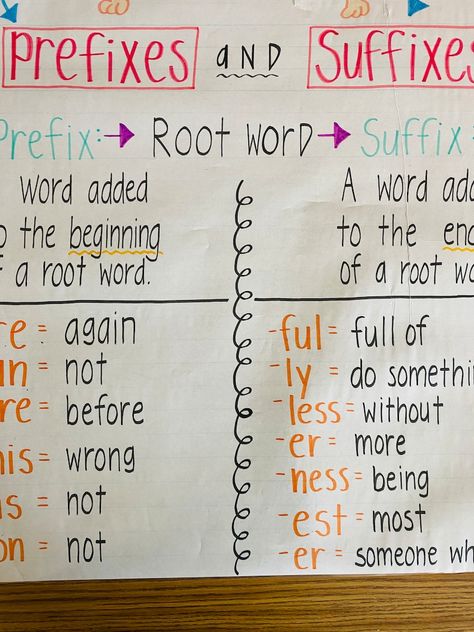 Prefixes and Suffixes
Prefix: → Root word → Suffix
word added
to the beginning
of a root word.
A word add
to the end
of a root wo
re = again
un = not
re = before
mis = wrong
is = not
on = not
-ful = full of
-ly = do somethin
-less = without
-er = more
-ness = being
-est = most
-er = someone wh